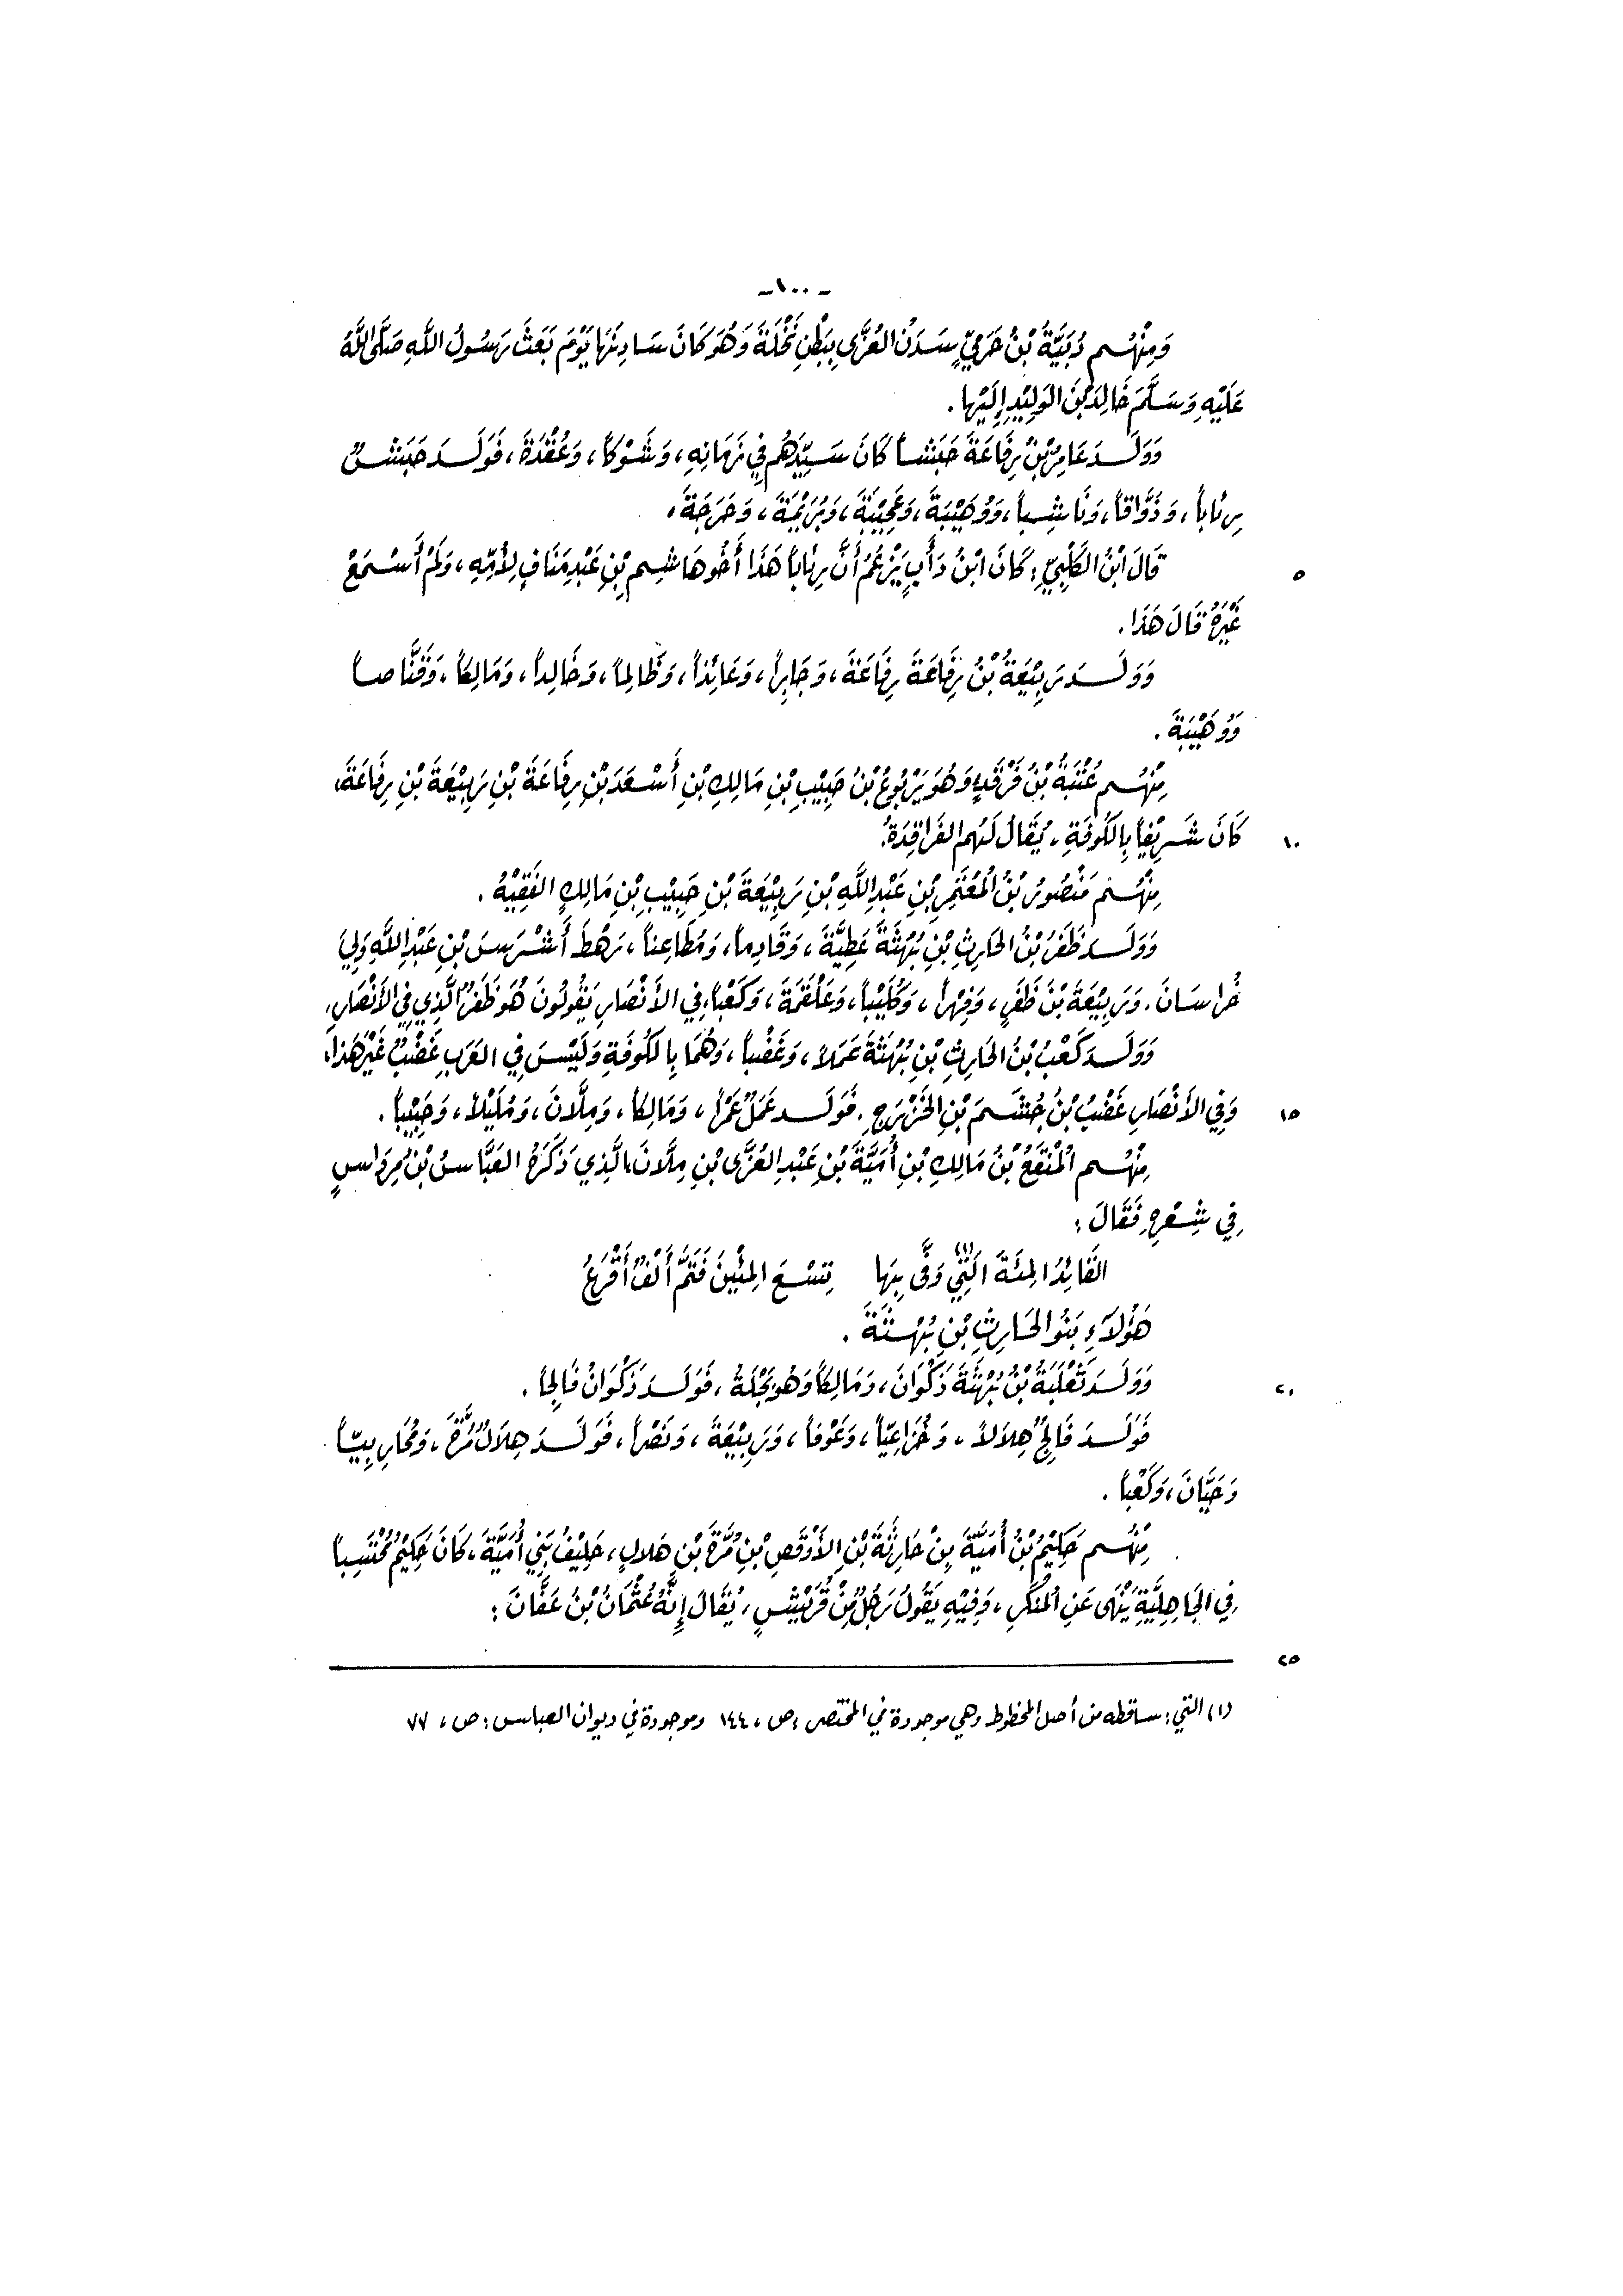 ـ ١٠٠ ـ
وَمِنْهُم دُبَيَّةُ بْنُ حَرَمِيٍّ سَدَنَ العُزَّى بِبَطْنِ نَخْلَةَ وَهُوَ كَانَ سَادِنَهَا يَوْمَ بَعَثَ رَسُولُ اللَّهِ صَلَّى اللَّهُ
عَلَيْهِ وَسَلَّمَ خَالِدَ بْنَ الوَلِيْدِ إِلَيْهَا .
وَوَلَدَ عَامِرُ بْنُ رِفَاعَةَ حَبَشاً كَانَ سَيِّدَهُم فِي زَمَانِهِ ، وَشَوْكاً ، وَعُقْدَةَ ، فَوَلَدَ حَبَشٌ
رِئَاباً ، وَذَوَّاقاً ، وَنَاشِباً ، وَوُهَيْبَةَ ، وَعُجَيْبَةَ ، وَبُرَيْمَةَ ، وَحَرَجَةَ .
قَالَ ابْنُ الكَلْبِيِّ : كَانَ ابْنُ دَأْبٍ يَزْعُمُ أَنَّ رِئَاباً هَذَا أَخُو هَاشِمِ بْنِ عَبْدِ مَنَافٍ لِأُمِّهِ ، وَلَمْ أَسْمَعْ
٥
غَيْرَهُ قَالَ هَذَا .
وَوَلَدَ رَبِيْعَةُ بْنُ رِفَاعَةَ رِفَاعَةَ ، وَجَابِراً ، وَعَائِذاً ، وَظَالِماً ، وَخَالِداً ، وَمَالِكاً ، وَقَنَّاصاً
وَوُهَيْبَةَ .
مِنْهُم عُتْبَةُ بْنُ فَرْقَدٍ وَهُوَ يَرْبُوعُ بْنُ حَبِيْبِ بْنِ مَالِكِ بْنِ أَسْعَدَ بْنِ رِفَاعَةَ بْنِ رَبِيْعَةَ بْنِ رِفَاعَةَ ،
كَانَ شَرِيْفاً بِالكُوفَةِ ، يُقَالُ لَهُم الفَرَاقِدَةُ .
١٠
مِنْهُم مَنْصُورُ بْنُ المُعْتَمِرِ بْنِ عَبْدِ اللَّهِ بْنِ رَبِيْعَةَ بْنِ حَبِيْبِ بْنِ مَالِكٍ الفَقِيْهُ .
وَوَلَدَ ظَفَرُ بْنُ الحَارِثِ بْنِ بُهْثَةَ عَطِيَّةَ ، وَقَادِماً ، وَمُطَاعِناً ، رَهْطَ أَشْرَسَ بْنِ عَبْدِ اللَّهِ وَلِيَ
خُرَاسَانَ . وَرَبِيْعَةَ بْنَ ظَفَرٍ ، وَفِهْراً ، وَكُلَيْباً ، وَعَلْقَمَةَ ، وَكَعْباً ، فِي الأَنْصَارِ يَقُولُونَ هُوَ ظَفَرٌ الَّذِي فِي الأَنْصَارِ .
وَوَلَدَ كَعْبُ بْنُ الحَارِثِ بْنِ بُهْثَةَ عَمَلاً ، وَغَضْباً ، وَهُمَا بِالكُوفَةِ وَلَيْسَ فِي العَرَبِ غَضْبٌ غَيْرُ هَذَا ،
وَفِي الأَنْصَارِ غَضْبُ بْنُ جُشَمَ بْنِ الخَزْرَجِ . فَوَلَدَ عَمَلٌ عَمْراً ، وَمَالِكاً ، وَمِلَّانَ ، وَمُلَيْلاً ، وَحَبِيْباً .
١٥
مِنْهُم المُنَقَّعُ بْنُ مَالِكِ بْنِ أُمَيَّةَ بْنِ عَبْدِ العُزَّى بْنِ مِلَّانَ ، الَّذِي ذَكَرَهُ العَبَّاسُ بْنُ مِرْدَاسٍ
فِي شِعْرِهِ فَقَالَ :
القَائِدُ المِئَةَ الَّتِي (١) وَفَّى بِهَا    تِسْعَ المِئِيْنَ فَتَمَّ أَلْفٌ أَقْرَعُ
هَؤُلَاءِ بَنُو الحَارِثِ بْنِ بُهْثَةَ .
وَوَلَدَ ثَعْلَبَةُ بْنُ بُهْثَةَ ذَكْوَانَ ، وَمَالِكاً وَهُوَ بَجْلَةُ ، فَوَلَدَ ذَكْوَانُ فَالِجاً .
٢٠
فَوَلَدَ فَالِجٌ هِلَالاً ، وَخُزَاعِيّاً ، وَعَوْفاً ، وَرَبِيْعَةَ ، وَنَصْراً ، فَوَلَدَ هِلَالٌ مُرَّةَ ، وَمُحَارِبِيّاً
وَحَيَّانَ ، وَكَعْباً .
مِنْهُم حَكِيْمُ بْنُ أُمَيَّةَ بْنِ حَارِثَةَ بْنِ الأَوْقَصِ بْنِ مُرَّةَ بْنِ هَلالٍ ، حَلِيْفُ بَنِي أُمَيَّةَ ، كَانَ حَكِيْمٌ مُحْتَسِباً
فِي الجَاهِلِيَّةِ يَنْهَى عَنِ المُنْكَرِ ، وَفِيْهِ يَقُولُ رَجُلٌ مِنْ قُرَيْشٍ ، يُقَالَ إِنَّهُ عُثْمَانُ بْنُ عَفَّانَ :
٢٥
(١) التي : ساقطه من أصل المخطوط وهي موجودة في المختصر ؛ ص ، ١٤٤ وموجودة في ديوان العباس : ص ، ٧٧